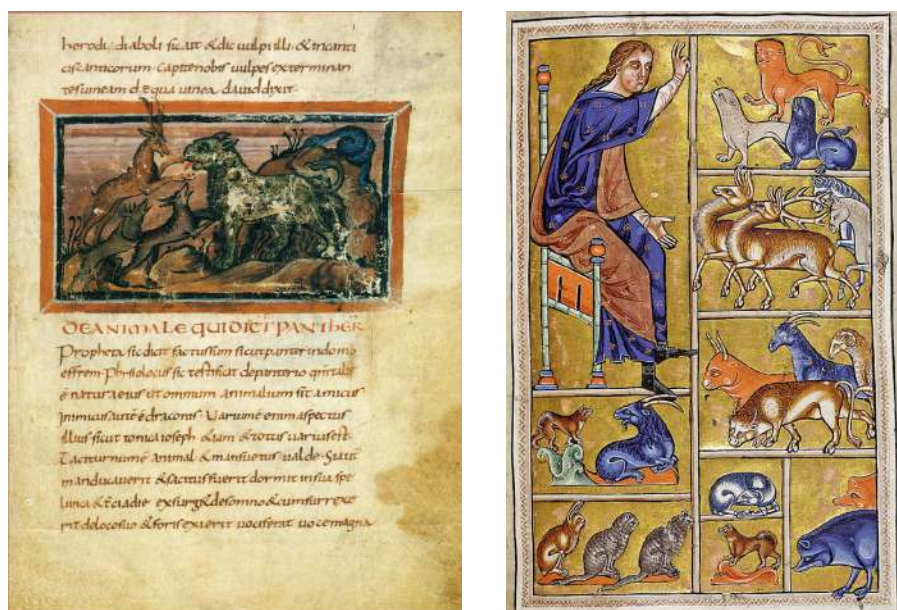 herodi; diaboli sic ait & dic vulpi illi & incanti
cis canticorum· capite nobis uulpes exterminan
tes uineam uinea dauid dixit·
DE ANIMALE QUI DICIT PANTHER
Propheta sic dicit factus sum sicut panter in domo
effrem· Phisiologus sic testificat de panterio
natura eius ut omnium animalium sit amicus
inimicus draconis· Varium enim aspectus
illius sicut tonica ioseph
Taciturnum animal & mansuetus ualde· Si aut
manducauerit & saciatus fuerit dormit in sua spe
lunca & tercia die exsurg& de somno & cum surrexe
rit de loco suo & foris exierit uociferat uoce magna